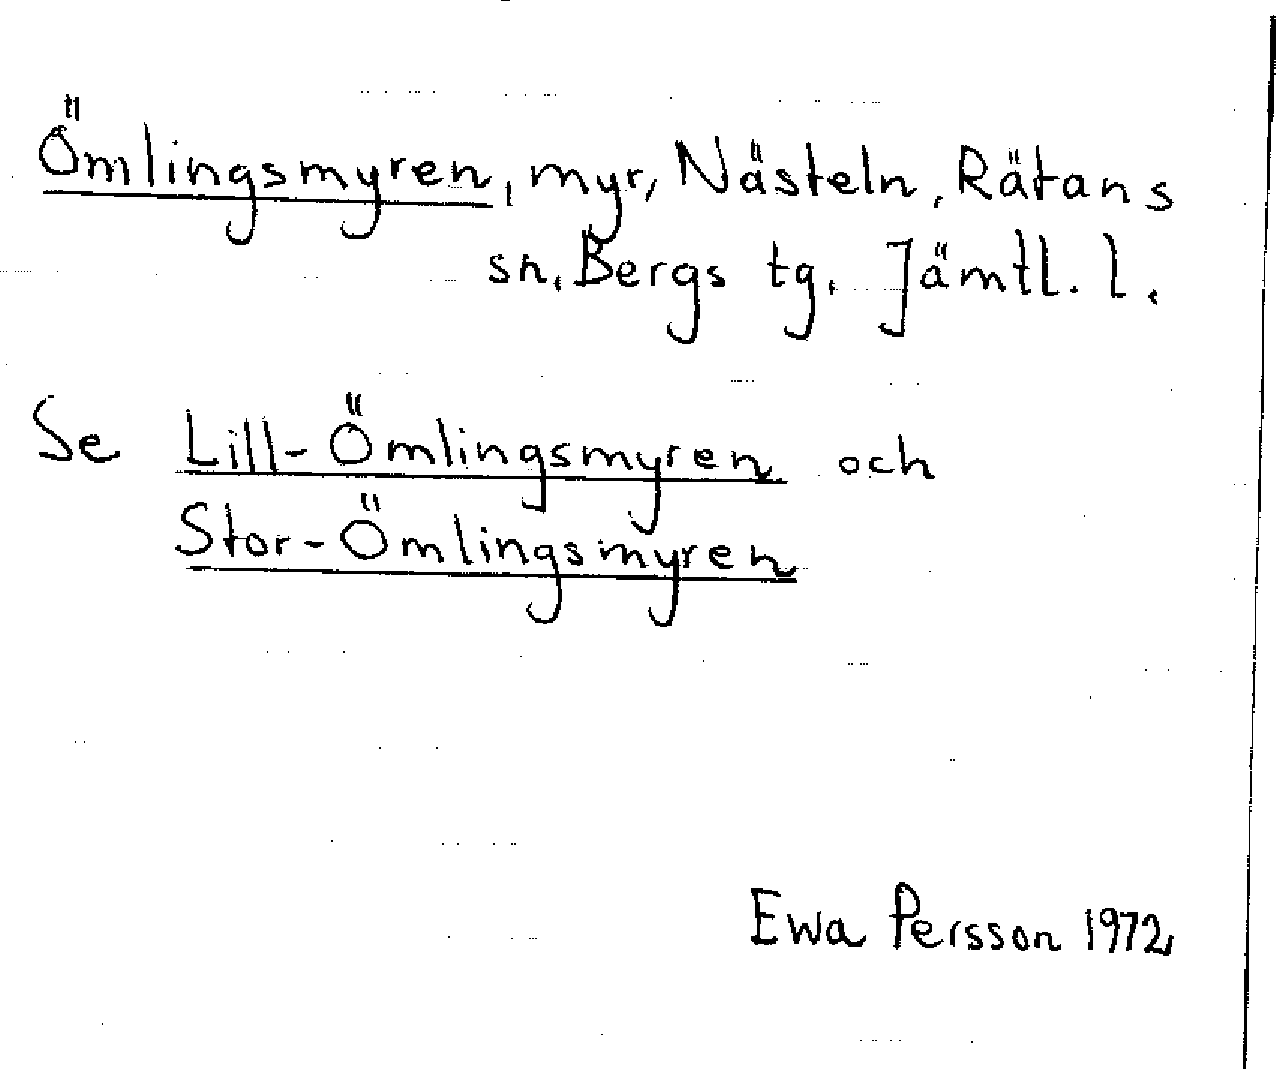 Ömlingsmyren, myr, Nästeln, Rätans
sn. Bergs tg. Jämtl. l.
Se Lill-Ömlingsmyren och
Stor-Ömlingsmyren
Ewa Persson 1972